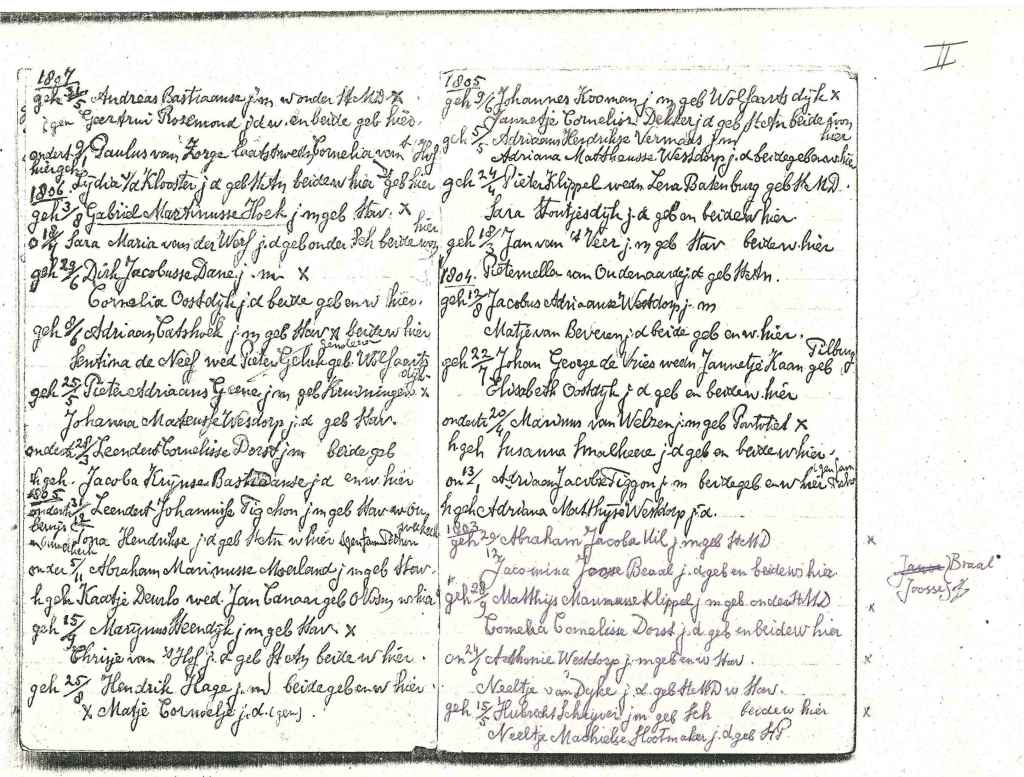 II
1807
geh 31/5 Andreas Bastiaanse j.m w onder St M D x
(gen Geertrui Rosemond j.d w. en beide geb hier.
ondert 9/1 Paulus van Zorge laatst wedn Cornelia van 't Hof
hier geh Lydia v/d Klooster j d geb St An beide w hier geb hier
1806.
geh 3/8 Gabriel Martinusse Hoek j m geb Stav. x
o 18/7 Sara Maria van der Werf j.d geb onder Sch beide won hier
geh 29/6 Dirk Jacobusse Dane j. m x
Cornelia Oostdijk j d beide geb en w hier.
geh 8/6 Adriaan Catshoek j m geb Stav x beide w hier
Sentina de Neef wed Pieter Geluk geb. Wolfaartsdijk
geh 25/5 Pieter Adriaans Geene j m geb Kruiningen x
Johanna Mateusse Wesdorp j.d geb Stav.
ondert 28/3 Leendert Cornelisse Dorst j m beide geb
h geh. Jacoba Krijnse Bastiaanse j d en w hier
1805
ondertr 13/12 Leendert Johannisse Tigchon j m geb Stav w bij
Jona Hendrikse j d geb St An w hier
onder 5/11 Abraham Marinusse Moerland j m geb Stav.
h geh Kaatje Deurlo wed. Jan Canaar geb O Vosm w hier
geh 15/9 Marijnus Heendijk j m geb Stav x
Chrisje van 't Hof j.d geb St An beide w hier.
geh 25/8 Hendrik Hage j.m beide geb en w hier.
x Matje Cornoelje j.d. (gen).
1805
geh 9/6 Johannes Kooman j m geb Wolfaartsdijk x
Jannetje Cornelisn Dekker j d geb St An beide won hier
geh 5/5 Adriaans Hendrikse Vermaas j m
Adriana Mattheusse Westdorp j.d beide geb en w hier
geh 24/4 Pieter Klippel wedn Lena Batenburg geb St M D.
Sara Houtjesdijk j.d geb en beide w hier.
geh 18/3 Jan van 't Veer j.m geb Stav beide w hier
Pieternella van Oudenaarde j.d geb St An.
1804.
geh 12/8 Jacobus Adriaanse Westdorp j.m
Matje van Beveren j.d beide geb en w. hier.
geh 22/7 Johan George de Vries wedn Jannetje Kaan geb Tilburg
Elizabeth Oostdijk j.d geb en beide w. hier
ondertr 20/4 Marinus van Welzen j.m geb Portvliet x
h geh Susanna Smalheere j.d geb en beide w hier.
on 13/1 Adriaan Jacobse Tiggon j m beide geb en w hier
h geh Adriana Matthijse Westdorp j.d.
1803
geh 29/12 Abraham Jacoba Uil j m geb St M D x
Jacomina Joosse Beaal j.d geb en beide w hier
Joosse Braal
Joosse
geh 28/9 Matthijs Marinusse Klippel j m geb onder St M D x
Cornelia Cornelisse Dorst j.d geb en beide w hier
on 24/6 Anthonie Westdorp j. m geb en w Stav. x
Neeltje van Dyke j d. geb St M D w Stav.
geh 15/5 Hubrecht Schrijver j m geb Sch beide w hier x
Neeltje Machielse Slootmaker j.d geb St P